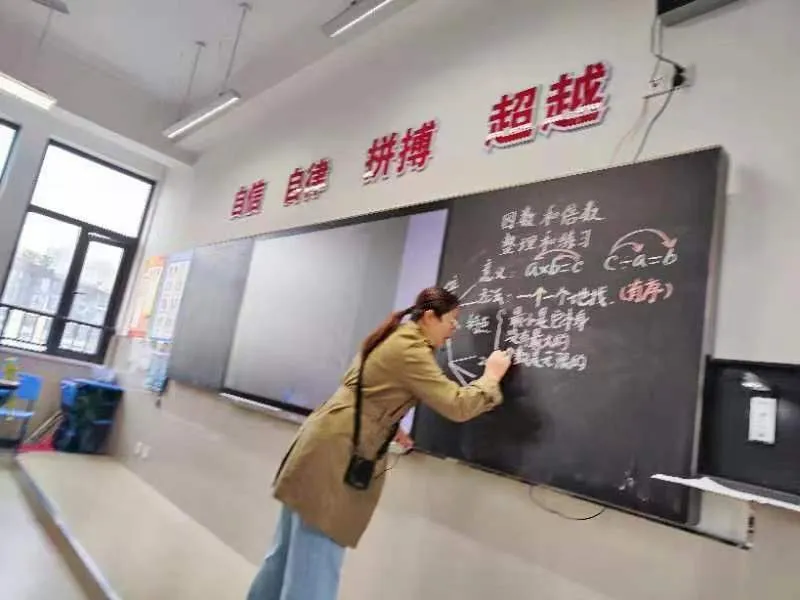 自信 自律 拼搏 超越
因数和倍数
整理和练习
意义：a×b=c c÷a=b
方法：一个一个地找（有序）
特点 最小是它本身
没有最大的
个数是无限的